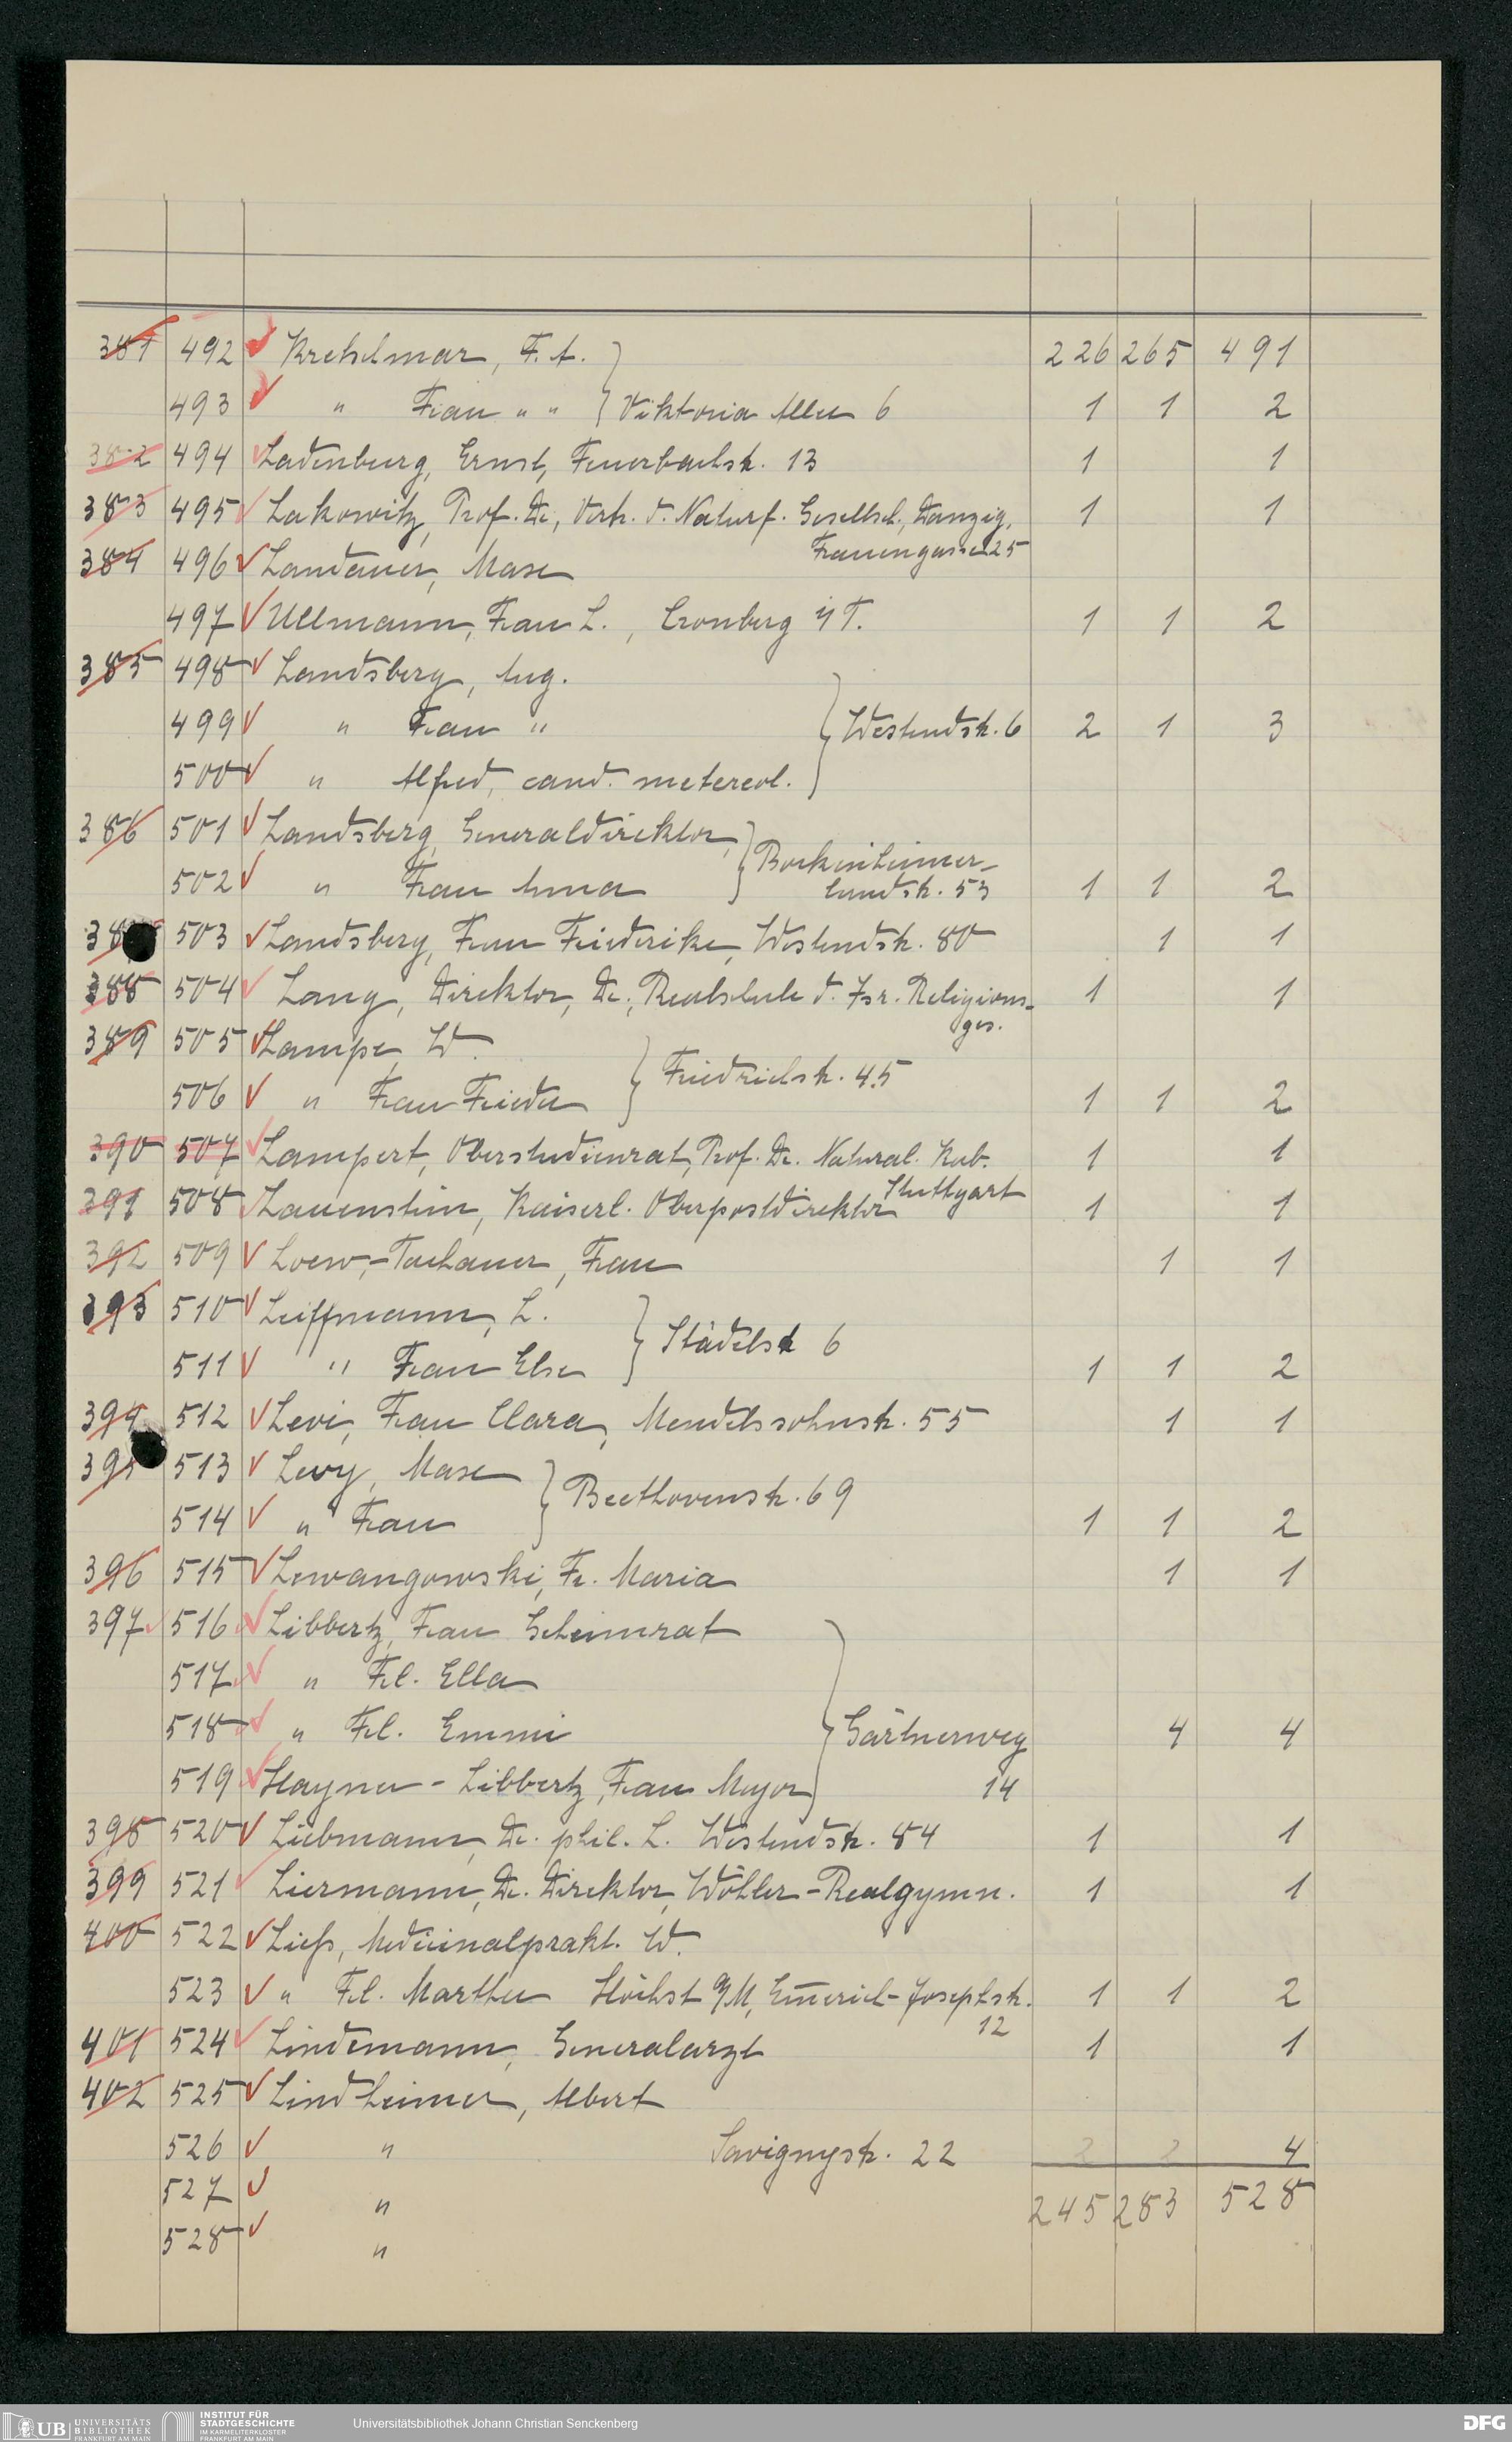 381 492 Kretzlmar, F. A. 226 265 491
493 " Frau " " Viktoria Allee 6 1 1 2
382 494 Ladenburg, Ernst, Feuerbachstr. 13 1 1
383 495 Lakowitz, Prof. Dr., Vertr. d. Naturf. Gesellsch., Danzig, 1 1
Frauengasse 25
384 496 Landauer, Max
497 Ullmann, Frau L., Cronberg i/T. 1 1 2
385 498 Landsberg, Aug.
499 " Frau " Westendstr. 6 2 1 3
500 " Alfred, cand. metereol.
386 501 Landsberg, Generaldirektor, Bockenheimer-
502 " Frau Anna landstr. 53 1 1 2
38 503 Landsberg, Frau Friederike, Westendstr. 80 1 1
388 504 Lang, Direktor, Dr., Realschule d. Isr. Religions- 1 1
ges.
389 505 Lampe, W. Friedrichstr. 45
506 " Frau Frieda 1 1 2
390 507 Lampert, Oberstudienrat, Prof. Dr. Natural. Kab. 1 1
Stuttgart
391 508 Lauenstein, Kaiserl. Oberpostdirektor 1 1
392 509 Loew,-Tachauer, Frau 1 1
393 510 Leiffmann, L. Städelstr 6
511 " Frau Else 1 1 2
394 512 Levi, Frau Clara, Mendelssohnstr. 55 1 1
395 513 Levy, Max Beethovenstr. 69
514 " Frau 1 1 2
396 515 Lewangowski, Fr. Maria 1 1
397 516 Libbertz, Frau Geheimrat
517 " Frl. Ella
518 " Frl. Emmi Gärtnerweg 4 4
519 Hayner-Libbertz, Frau Major 14
398 520 Liebmann, Dr. phil. L. Westendstr. 84 1 1
399 521 Liermann, Dr. Direktor, Wöhler-Realgymn. 1 1
400 522 Liess, Medicinalprakt. W.
523 " Frl. Martha Höchst a/M, Em̅erich-Josephstr. 1 1 2
12
401 524 Lindemann, Generalarzt 1 1
402 525 Lindheimer, Albert
526 " Savignystr. 22 2 2 4
527 " 245 283 528
528 "
UB UNIVERSITÄTS BIBLIOTHEK FRANKFURT AM MAIN
INSTITUT FÜR STADTGESCHICHTE IM KARMELITERKLOSTER FRANKFURT AM MAIN
Universitätsbibliothek Johann Christian Senckenberg
DFG